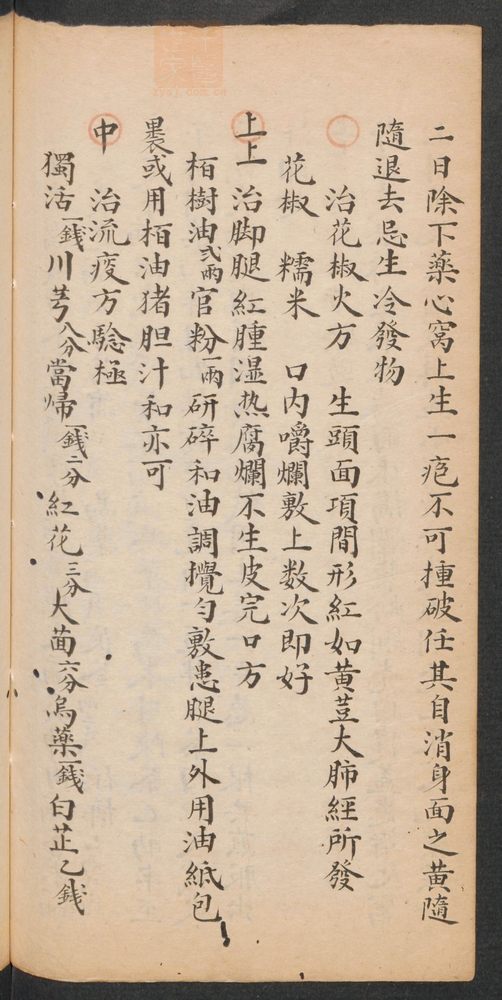 二日除下藥心窩上生一疱不可挿破任其自消身面之黄隨
隨退去忌生冷發物
治花椒火方　生頭面項間形紅如黄荳大肺經所發
花椒　糯米　口内嚼爛敷上数次即好
上上　治脚腿紅腫湿热腐爛不生皮完口方
栢樹油弍兩官粉一兩研碎和油調攪匀敷患腿上外用油紙包
裹或用栢油猪胆汁和亦可
中　治流疫方騐極
獨活一錢川芎八分當歸一錢二分紅花三分大茴六分烏藥一錢白芷乙錢